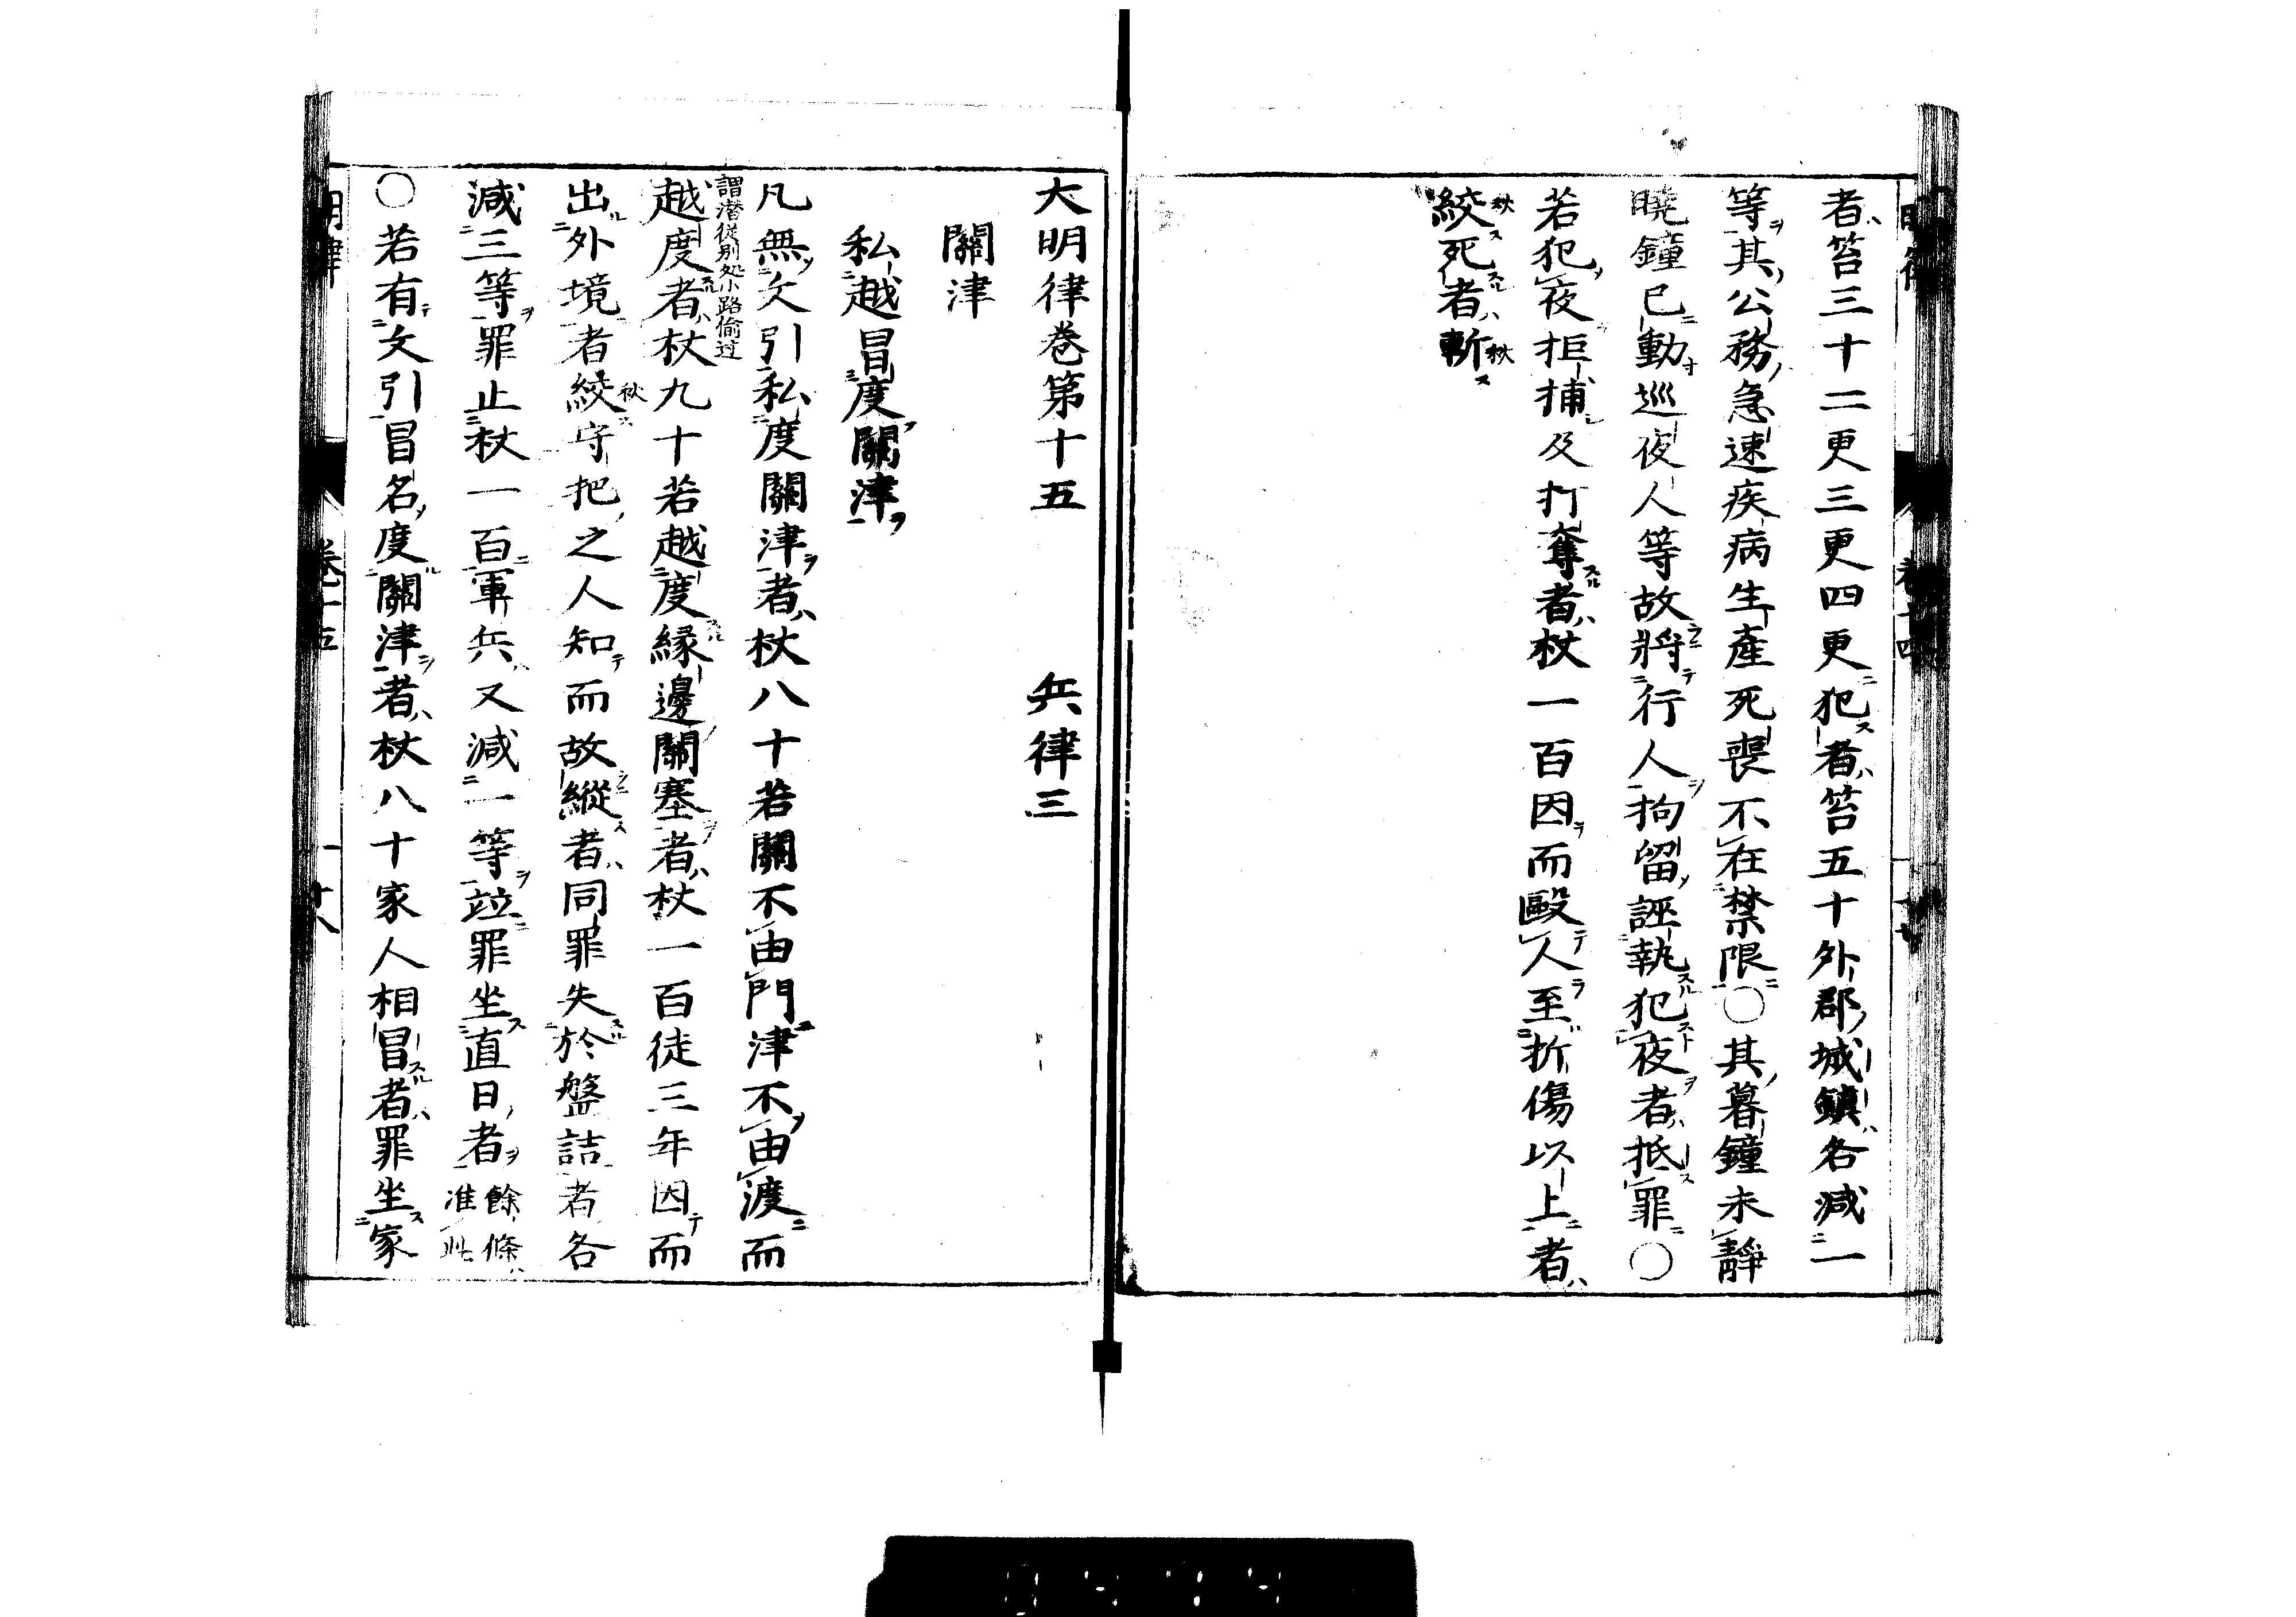 者笞三十二更三更四更犯者笞五十外郡城鎮各減一
等其公務急速疾病生產死喪不在禁限〇其暮鐘未靜
曉鐘已動巡夜人等故將行人拘留誣執犯夜者抵罪〇
若犯夜拒捕及打奪者杖一百因而毆人至折傷以上者
絞死者斬
大明律卷第十五 兵律三
關津
私越冒度關津
凡無文引私度關津者杖八十若關不由門津不由渡而
謂潛從別処小路偷过
越度者杖九十若越度緣邊關塞者杖一百徒三年因而
出外境者絞守把之人知而故縱者同罪失於盤詰者各
減三等罪止杖一百軍兵又減一等竝罪坐直日者餘條准此
〇若有文引冒名度關津者杖八十家人相冒者罪坐家
明律 卷十五